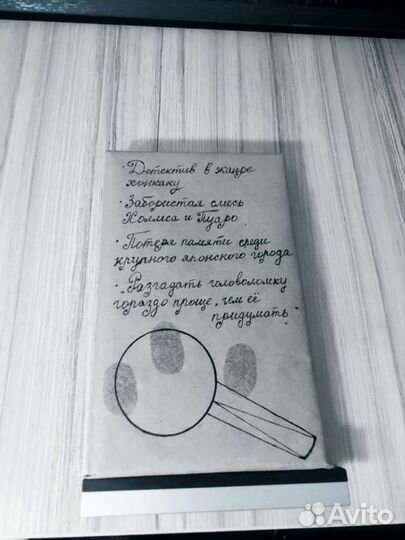 · Детектив в жанре
хонкаку
· Забористая смесь
Холмса и Пуаро
· Потеря памяти среди
крупного японского города
· „Разгадать головоломку
гораздо проще, чем её
придумать"
Avito